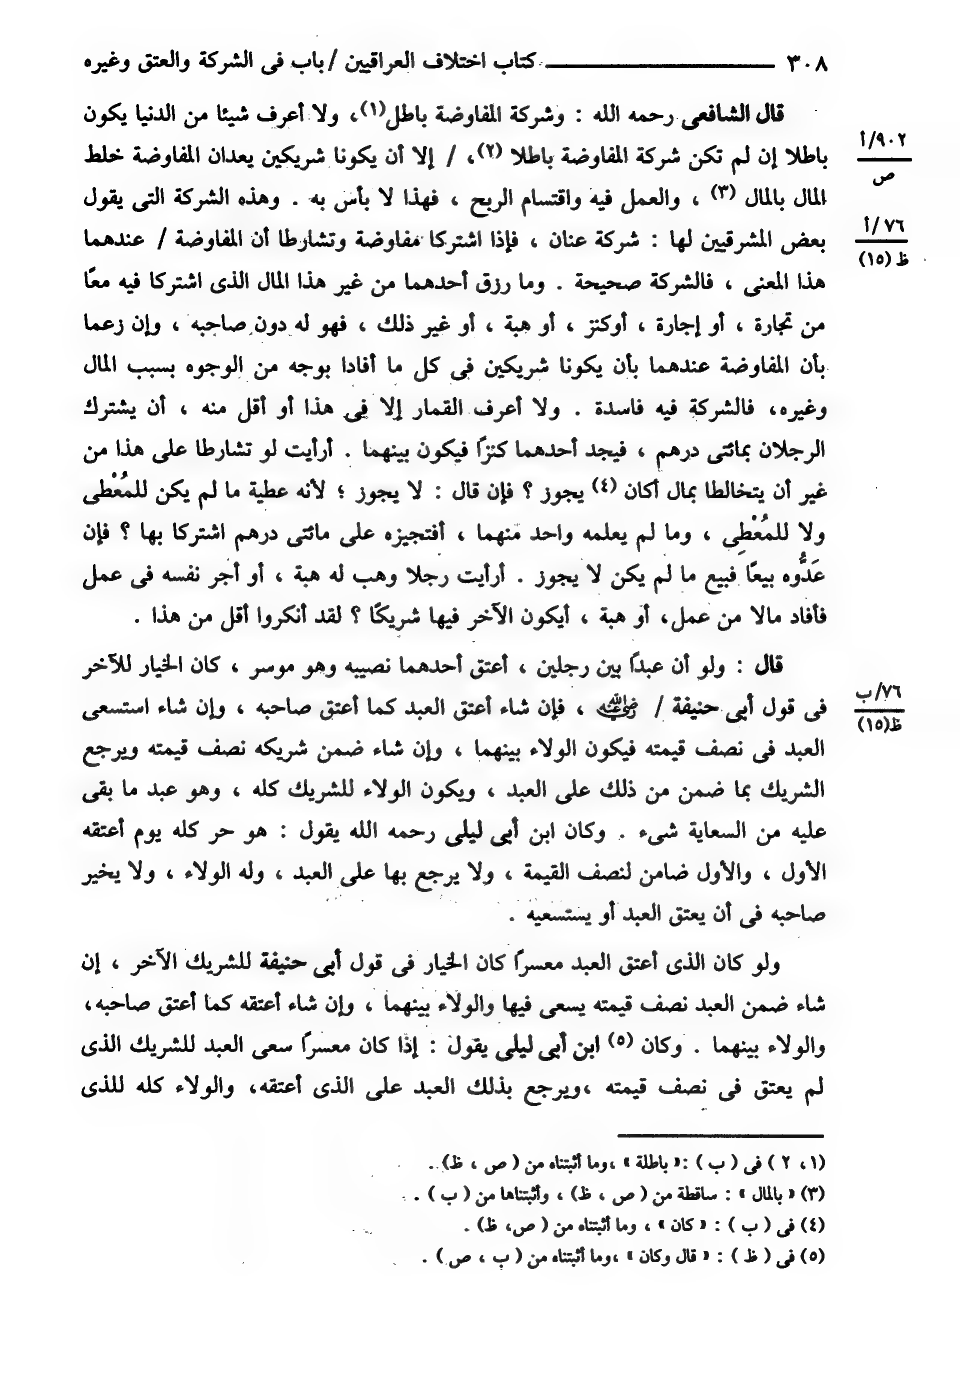 ٣٠٨ ــــــــــــــــــ كتاب اختلاف العراقيين / باب فى الشركة والعتق وغيره
قال الشافعى رحمه الله : وشركة المفاوضة باطل(١)، ولا أعرف شيئا من الدنيا يكون
٩٠٢/أ
ص
باطلا إن لم تكن شركة المفاوضة باطلا (٢)، / إلا أن يكونا شريكين يعدان المفاوضة خلط
المال بالمال (٣) ، والعمل فيه واقتسام الربح ، فهذا لا بأس به . وهذه الشركة التى يقول
٧٦/أ
ظ (١٥)
بعض المشرقيين لها : شركة عنان ، فإذا اشتركا مفاوضة وتشارطا أن المفاوضة / عندهما
هذا المعنى ، فالشركة صحيحة . وما رزق أحدهما من غير هذا المال الذى اشتركا فيه معًا
من تجارة ، أو إجارة ، أوكنز ، أو هبة ، أو غير ذلك ، فهو له دون صاحبه ، وإن زعما
بأن المفاوضة عندهما بأن يكونا شريكين فى كل ما أفادا بوجه من الوجوه بسبب المال
وغيره، فالشركة فيه فاسدة . ولا أعرف القمار إلا فى هذا أو أقل منه ، أن يشترك
الرجلان بمائتى درهم ، فيجد أحدهما كنزًا فيكون بينهما . أرأيت لو تشارطا على هذا من
غير أن يتخالطا بمال أكان (٤) يجوز ؟ فإن قال : لا يجوز ؛ لأنه عطية ما لم يكن للمُعْطى
ولا للمُعْطِى ، وما لم يعلمه واحد منهما ، أفتجيزه على مائتى درهم اشتركا بها ؟ فإن
عَدُّوه بيعًا فبيع ما لم يكن لا يجوز . أرأيت رجلا وهب له هبة ، أو أجر نفسه فى عمل
فأفاد مالا من عمل، أو هبة ، أيكون الآخر فيها شريكًا ؟ لقد أنكروا أقل من هذا .
قال : ولو أن عبدًا بين رجلين ، أعتق أحدهما نصيبه وهو موسر ، كان الخيار للآخر
٧٦/ب
ظ(١٥)
فى قول أبى حنيفة / رضي الله عنه ، فإن شاء أعتق العبد كما أعتق صاحبه ، وإن شاء استسعى
العبد فى نصف قيمته فيكون الولاء بينهما ، وإن شاء ضمن شريكه نصف قيمته ويرجع
الشريك بما ضمن من ذلك على العبد ، ويكون الولاء للشريك كله ، وهو عبد ما بقى
عليه من السعاية شىء . وكان ابن أبى ليلى رحمه الله يقول : هو حر كله يوم أعتقه
الأول ، والأول ضامن لنصف القيمة ، ولا يرجع بها على العبد ، وله الولاء ، ولا يخير
صاحبه فى أن يعتق العبد أو يستسعيه .
ولو كان الذى أعتق العبد معسرًا كان الخيار فى قول أبى حنيفة للشريك الآخر ، إن
شاء ضمن العبد نصف قيمته يسعى فيها والولاء بينهما ، وإن شاء أعتقه كما أعتق صاحبه،
والولاء بينهما . وكان (٥) ابن أبى ليلى يقول : إذا كان معسرًا سعى العبد للشريك الذى
لم يعتق فى نصف قيمته ،ويرجع بذلك العبد على الذى أعتقه، والولاء كله للذى
(١، ٢ ) فى ( ب ) :« باطلة » ،وما أثبتناه من ( ص ، ظ) .
(٣) « بالمال » : ساقطة من ( ص ، ظ) ، وأثبتناها من ( ب ) .
(٤) فى ( ب ) : « كان » ، وما أثبتناه من ( ص، ظ) .
(٥) فى ( ظ ) : « قال وكان » ،وما أثبتناه من ( ب ، ص ) .